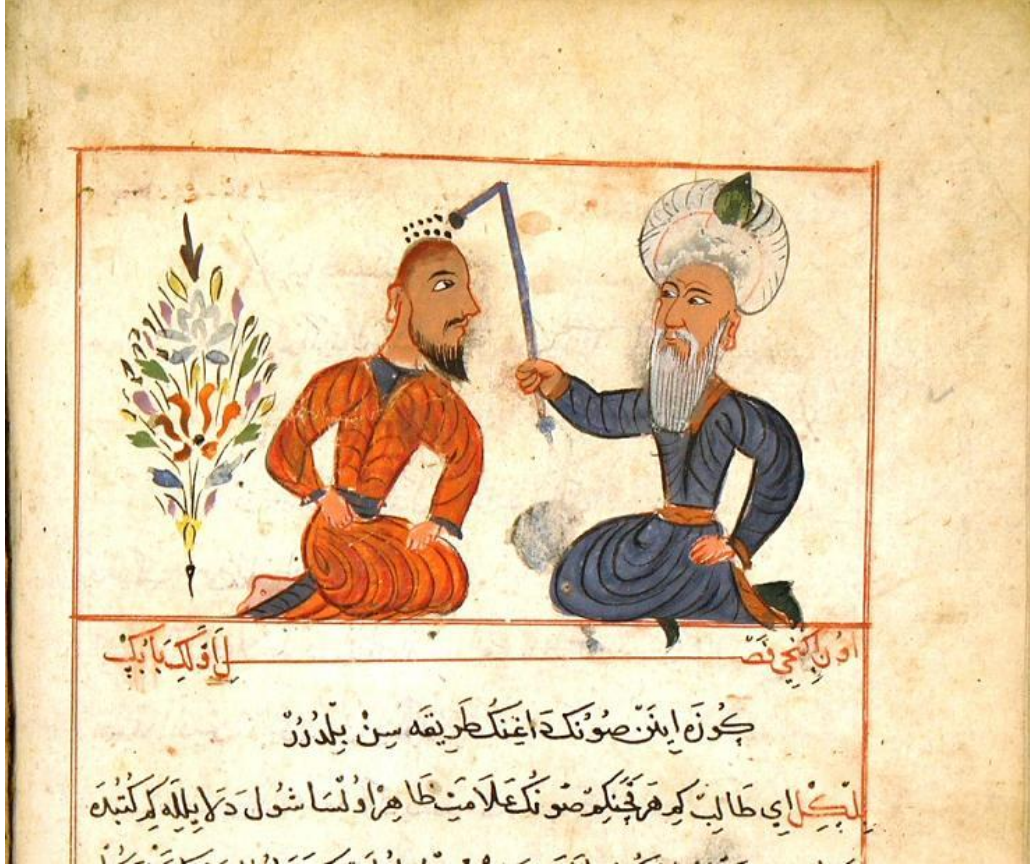 اون اكنجي فصل اوّلكي بابك
كوزه اينن صونك داغنك طريقه سن بلدرر
بلكل اي طالب كم هر قچنكم صونك علامت ظاهر اولسا شول دلايلله كم كتبده